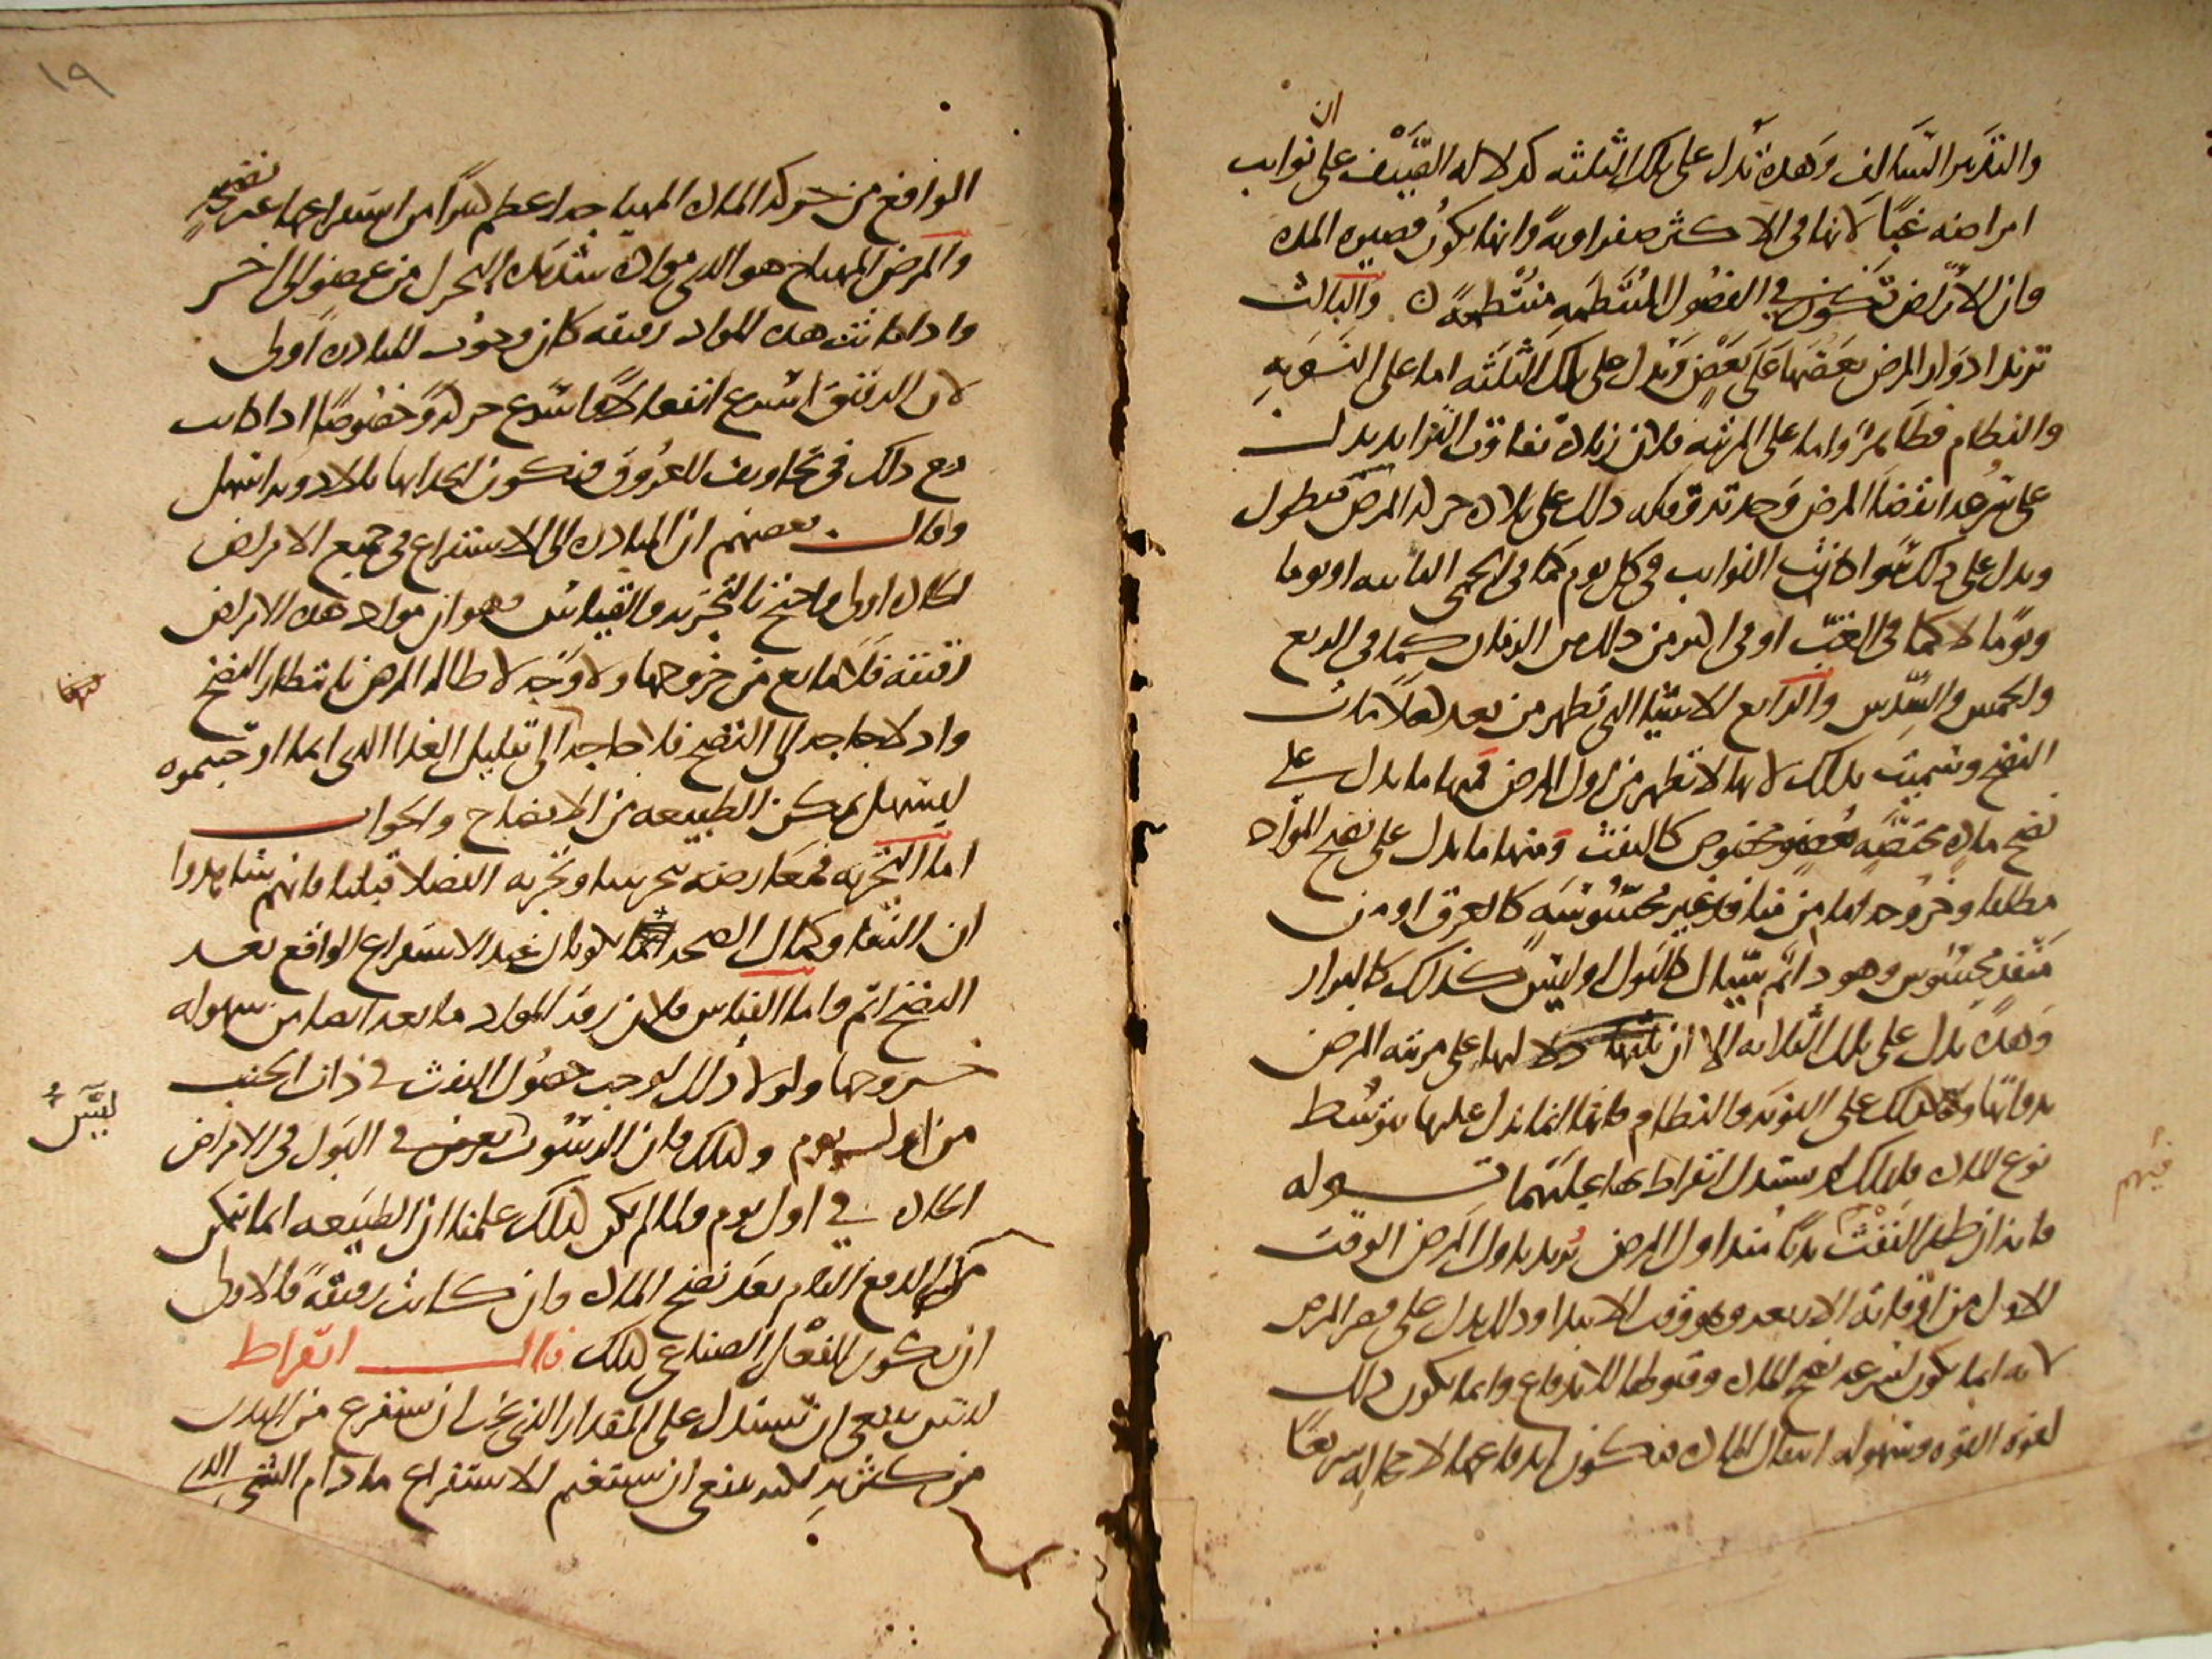 ان
والتقدير السالف وهذه تدل على تلك الثلثه كدلاله الصيف على نوايب
امراضه غبا لانها في الاكثر صفراوية وانها يكون قصيره المده
وان الامراض تكون في الفصول المنتظمه منتظمة ن والثالث
تزيد ادوار المرض بعضها على بعض وتدل على تلك الثلثه اما على النوبه
والنظام فظاهر واما على المرتبه فلان زياده تفاوت التزايد يدل
على قرب انقضا المرض وحدته وقلته ذلك على بلاده حركه المرض فيطول
ويدل على ذلك سوا كانت النوايب في كل يوم كما في الحمى النايبه او يوما
ويوما لا كما في الغب او في اكثر من ذلك من الزمان كما في الربع
والخمس والسدس والرابع الاشيا التي تظهر من بعد كعلامات
النضج وسميت بذلك لانها لا تظهر من اول المرض فمنها ما يدل على
نضج ماده مختصه بعضو مخصوص كالنفث ومنها ما يدل على نضج المواد
مطلقا وخروجه اما من منافذ غير محسوسه كالعرق او من
منفذ محسوس وهو دائم سيال كالبول او ليس كذلك كالبراز
وهذه تدل على تلك الثلاثه الا ان دلالتها على مرتبه المرض
بذواتها ولا كذلك على النوبه والنظام فانها انما تدل عليها بتوسط
نوع الماده فلذلك لم يستدل ابقراط بها عليهما قوله
فانه ان ظهر النفث بديا منذ اول المرض يريد باول المرض الوقت
الاول من اوقاته الاربعه وهو وقت الابتدا وذلك يدل على قصر المرض
لانه انما يكون لسرعه نضج الماده وقبولها للاندفاع وانما يكون ذلك
لقوه القوه وسهوله انفعال الماده فيكون اندفاعها لا محاله سريعا
فيهم
١٩
نضجه
الواقع من حركه الماده المهياجه اعظم كثيرا من استفراغها غير
والمرض المهياج هو الذي مواده شديده التحرك من عضو الى اخر
واذا كانت هذه المواد رقيقه كان وجوب المبادره اولى
لان الرقيق اسرع انفعالا واسرع حركة وخصوصا اذا كانت
مع ذلك في تجاويف العروق فيكون انجذابها بالادويه اسهل
وقال بعضهم ان المبادره الى الاستفراغ في جميع الامراض
الحاده اولى واحتج بالتجربه والقياس وهو ان مواد هذه الامراض
رقيقه فلا مانع من خروجها ولا وجه لاطاله المرض بانتظار النضج
فيها
واذ لا حاجه الى النضج فلا حاجه الى تقليل الغذا الذي انما اوجبموه
ليسهل تمكن الطبيعه من الانضاج والجواب
اما التجربه فمعارضه بتجربتنا وتجربه الفضلا قبلنا فانهم شاهدوا
ان النقا وكمال الصحه انما يكونان عند الاستفراغ الواقع بعد
النضج اتم واما القياس فلان رقه المواد مانعه ايضا من سهوله
خروجها ولولا ذلك لوجب حصول النفث في ذات الجنب
ليس
من اول يوم وكذلك فان الرسوب يعرض في البول في الامراض
الحاده في اول يوم ولما لم يكن كذلك علمنا ان الطبيعه انما تتمكن
من الدفع التام بعد نضج الماده وان كانت رقيقة فالاولى
ان يكون الفعل الصناعي كذلك قال ابقراط
ليس ينبغي ان تستدل على المقدار الذي يجب ان يستفرغ من البدن
من كثرته لكنه ينبغي ان يستغنم الاستفراغ ما دام الشي الذي